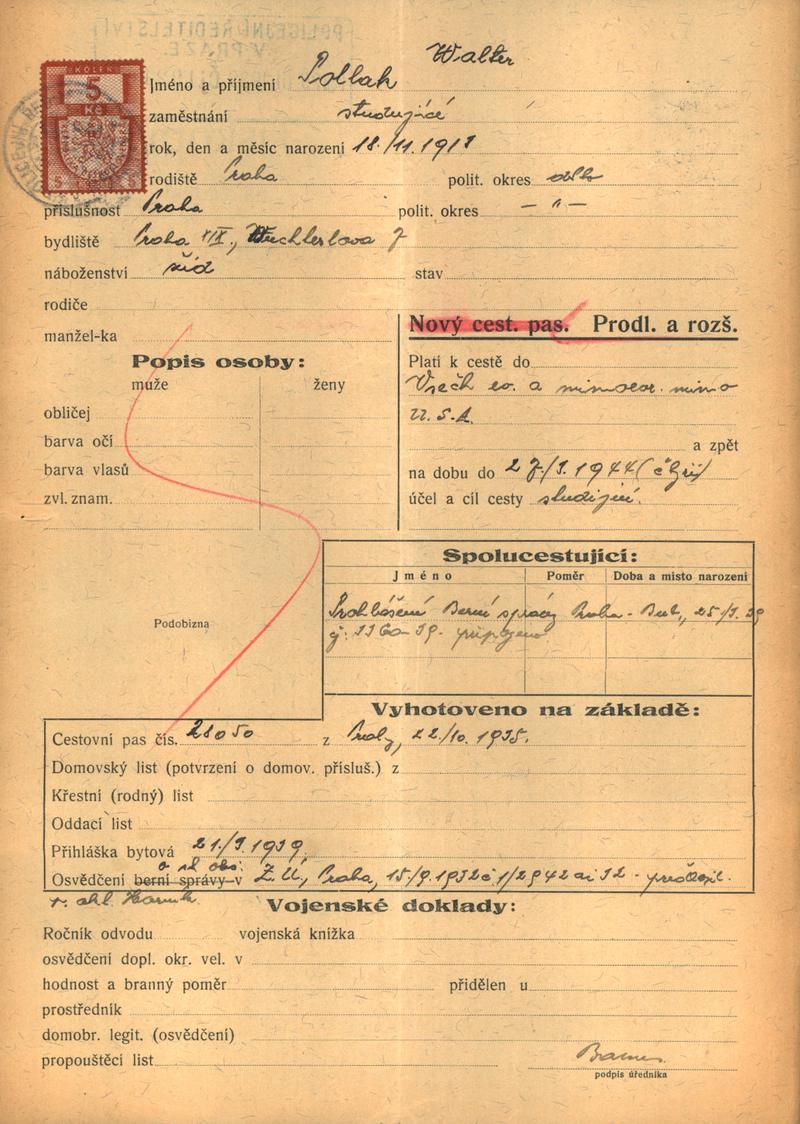 POLICEJNÍ ŘEDITELSTVÍ
V PRAZE.
KOLEK
5
Kč
Walter
Jméno a příjmení Pollak
zaměstnání studující
rok, den a měsíc narození 18./11.1911
rodiště Praha polit. okres
příslušnost Praha polit. okres — " —
bydliště Praha XIX., Wuchterlova 7
náboženství žid stav
rodiče
manžel-ka
Nový cest. pas. Prodl. a rozš.
Popis osoby:
muže ženy
obličej
barva očí
barva vlasů
zvl. znam.
Platí k cestě do
Všech ev. a mimoevr. mimo
U.S.A.
a zpět
na dobu do 27./1.1944
účel a cíl cesty studijní.
Podobizna
Spolucestující:
Jméno Poměr Doba a místo narození
Prohlášení Berní správy Praha -
připojeno
Vyhotoveno na základě:
Cestovní pas čís. 28050 z Prahy, 22./10. 1935.
Domovský list (potvrzení o domov. přísluš.) z
Křestní (rodný) list
Oddací list
Přihláška bytová 21./1.1939.
Osvědčení berní správy v Z. Ú., Praha, 15./9.1932 č 1/2942 ai 32 -
Vojenské doklady:
Ročník odvodu vojenská knížka
osvědčení dopl. okr. vel. v
hodnost a branný poměr přidělen u
prostředník
domobr. legit. (osvědčení)
propouštěcí list
podpis úředníka